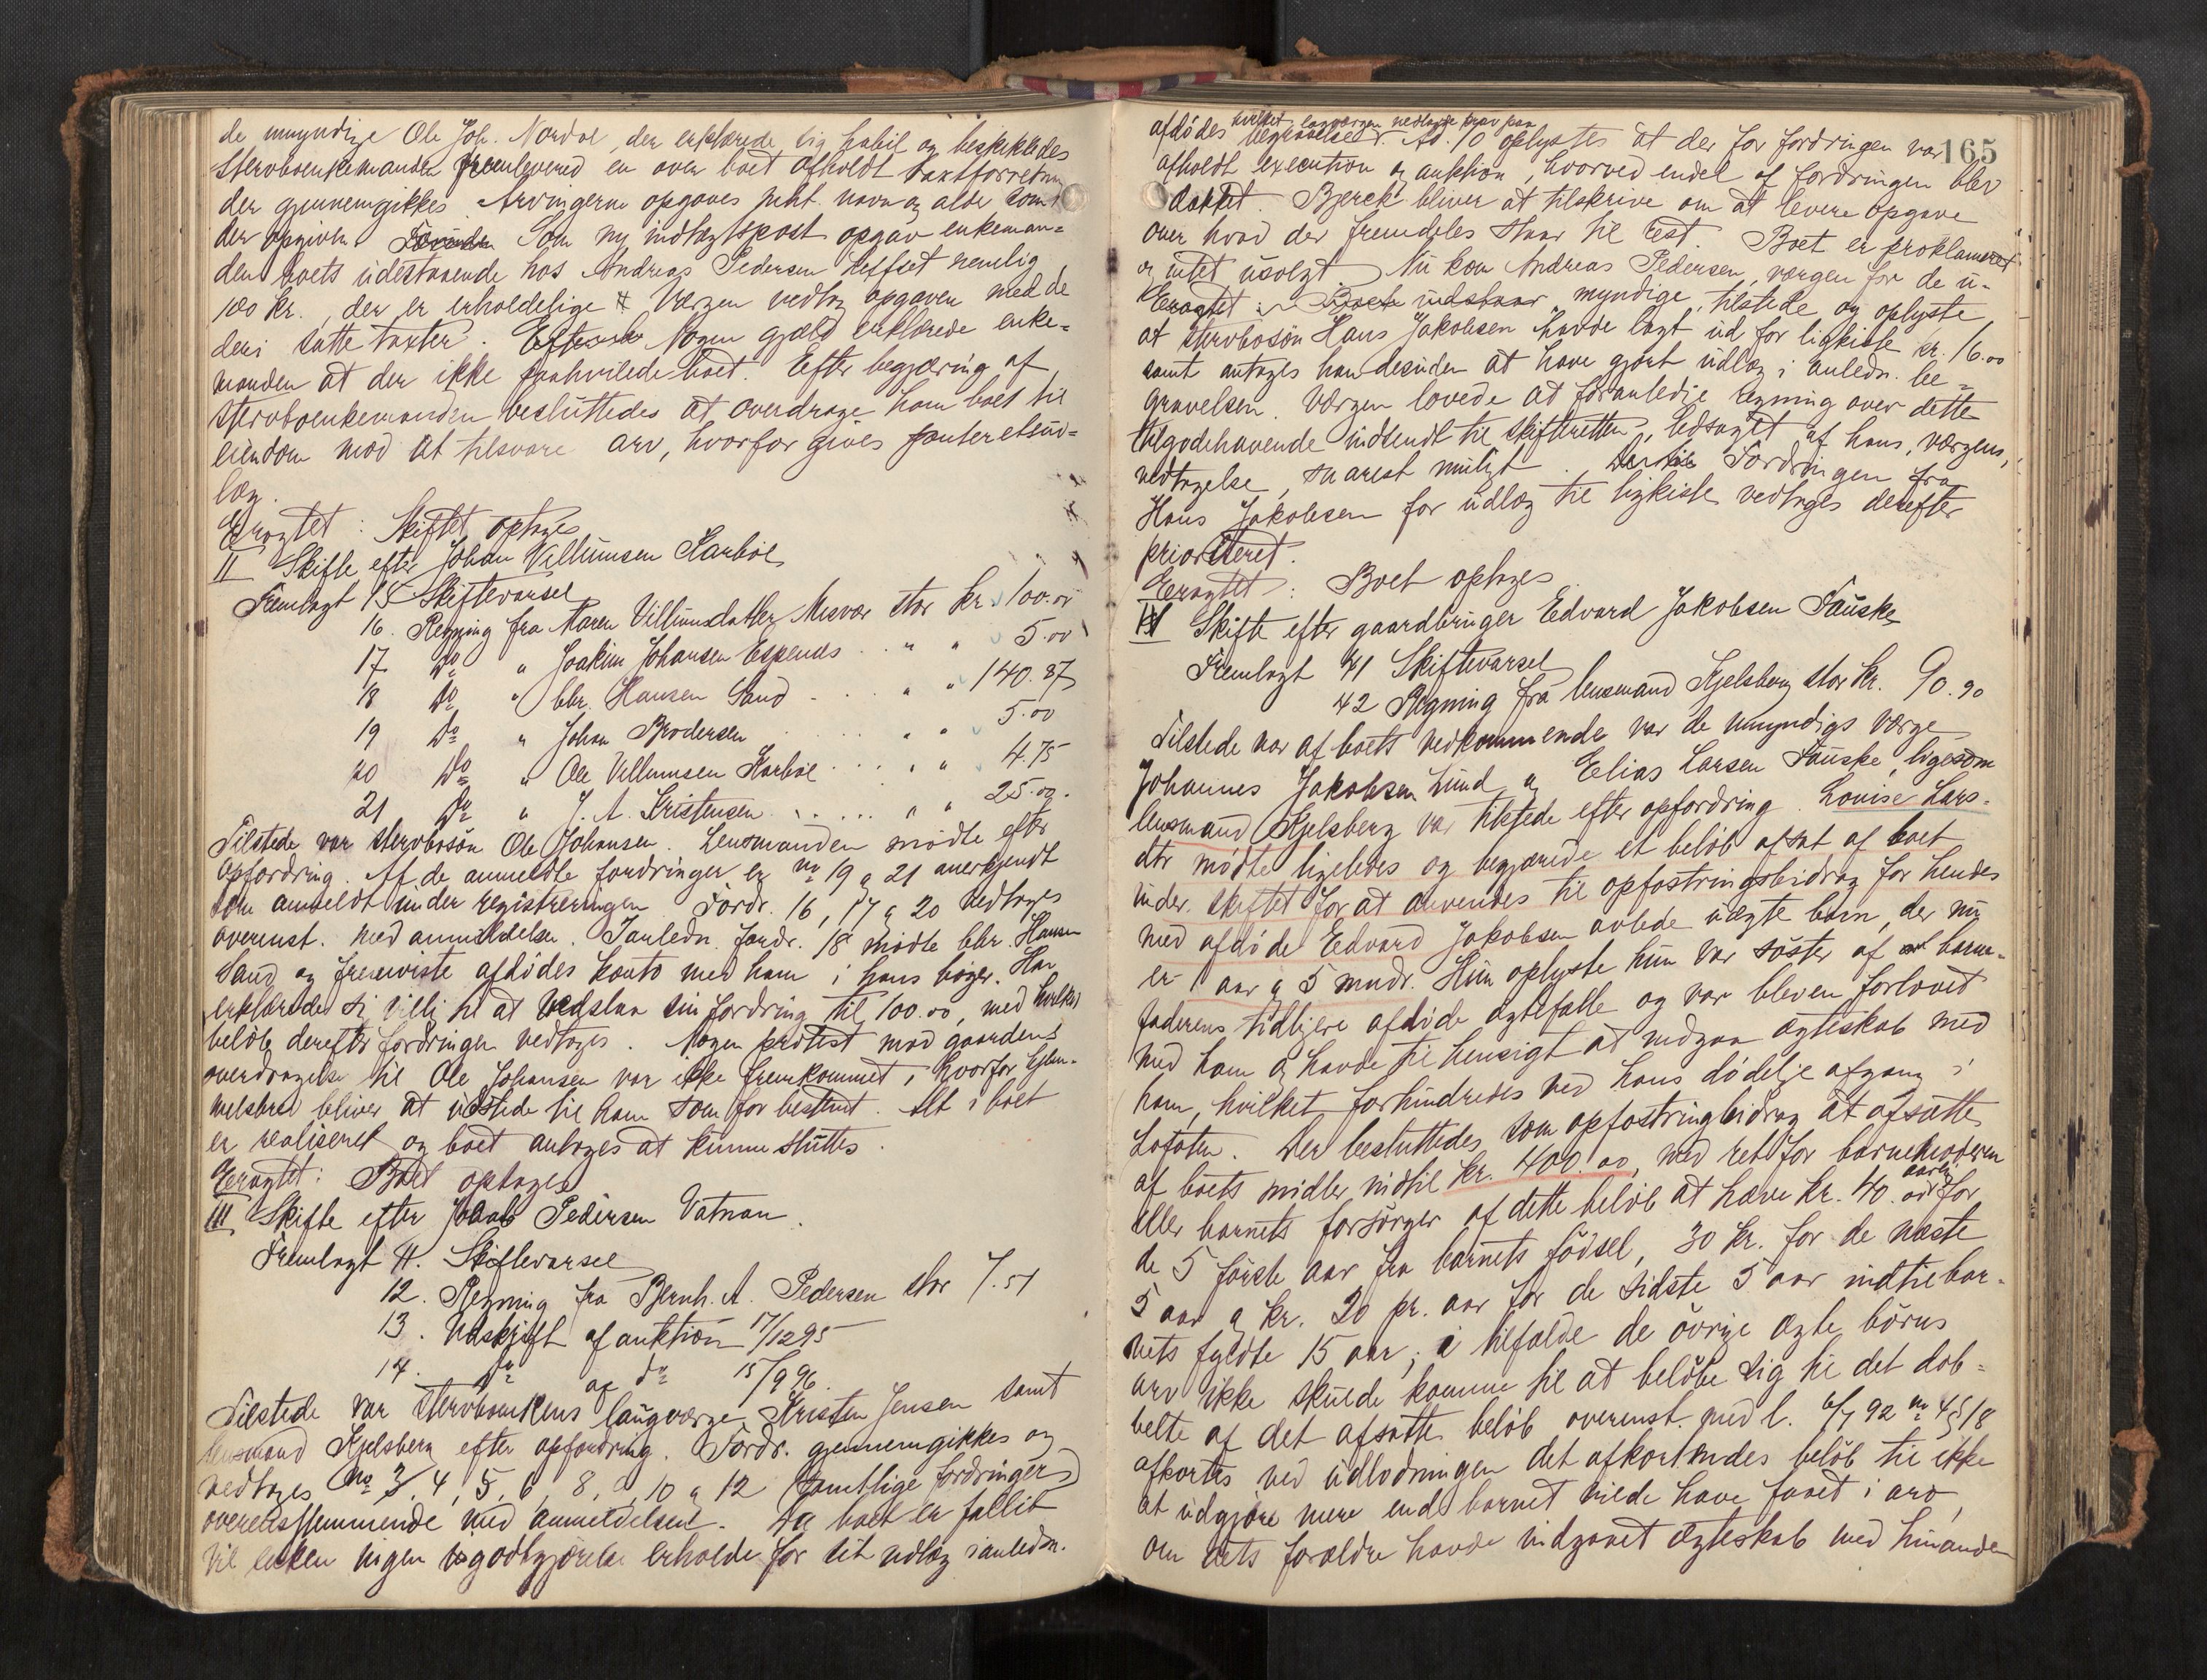 de umyndige Ole Joh. Nordal, der erklærede sig habil og beskikkedes
Stervboenkemanden fremleverede en over boet afholdt taxtforretning
der gjennemgikkes. Arvingerne opgaves joht. navn og alder som
der opgiven. Som ny indtægtspost opgav enkeman=
den boets udestaaende hos Andreas Pedersen nemlig
100 kr., der er erholdelige. Værgen vedtog opgaven med de
deri satte taxter. Nogen gjæld erklærede enke=
manden at der ikke paahvilede boet. Efter begjæring af
stervboenkemanden besluttedes at overdrage ham boet til
eiendom mod at tilsvare arv, hvorfor gives panteretsud=
læg.
Eragtet: Skiftet optages
II Skifte efter Johan Villumsen Karbøl
Fremlagt 15 Skiftevarsel
16. Regning fra Maren Villumsdatter Misvær stor kr. 100.00
17 Do " Joakim Johansen Espenes .. " " 5.00
18 Do " Chr. Hansen Sand . . . " " 140.87
19 Do " Johan Brodersen . . . " " 5.00
20 Do " Ole Villumsen Karbøl . . . " " 4.75
21 Do " J. A. Kristensen . . . . . " " 25.00.
Tilstede var stervbosøn Ole Johansen. Lensmanden mødte efter
opfordring. Af de anmeldte fordringer er no 19 & 21 anerkjendt
som anmeldt under registreringen. Fordr. 16, 17 & 20 vedtages
overenst. med anmeldelsen. I anledn. fordr. 18 mødte Chr. Hansen
Sand og fremviste afdødes konto med ham i hans bøger. Han
erklærede sig villig til at nedslaa sin fordring til 100.00, med hvilket
beløb derefter fordringen vedtages. Nogen protest mod gaardens
overdragelse til Ole Johansen var ikke fremkommet, hvorfor hjem=
melsbrev bliver at udstede til ham som før bestemt. Alt i boet
er realiseret og boet antages at kunne sluttes.
Eragtet: Boet optages
III Skifte efter Jakob Pedersen Vatnan.
Fremlagt 11. Skiftevarsel
12. Regning fra Bernh. A. Pedersen stor 7.51
13. Udskrift af auktion 17/12 95
14. Do af do 15/9 96.
Tilstede var stervboenkens laugværge Kristen Jensen samt
lensmand Kjelsberg efter opfordring. Fordr. gjennemgikkes og
vedtages No 3, 4, 5, 6, 8, 9, 10 & 12 (samtlige fordringer)
overensstemmende med anmeldelsen. Da boet er fallit
vil enken ingen godtgjørelse erholde for sit udlæg i anledn.
165
hvilket laugværgen nedlagde krav paa
afdødes begravelse. Ad. 10 oplystes at der for fordringen var
afholdt execution og auktion, hvorved endel af fordringen blev
dækket. Bjerck bliver at tilskrive om at levere opgave
over hvad der fremdeles staar til rest. Boet er proklameret
og intet usolgt. Nu kom Andreas Pedersen, værgen for de u-
Eragtet: Boets indstaar myndige, tilstede og oplyste
at stervbosøn Hans Jakobsen havde lagt ud for ligkiste kr. 16.00
samt antages han desuden at have gjort udlæg i anledn. be=
gravelsen. Værgen lovede at foranledige regning over dette
tilgodehavende indsendt til skifteretten, ledsaget af hans, værgens,
vedtagelse, snarest muligt. Fordringen fra
Hans Jakobsen for udlæg til ligkiste vedtages derefter
prioriteret.
Eragtet: Boet optages
IV Skifte efter gaardbruger Edvard Jakobsen Fauske
Fremlagt 41 Skiftevarsel
42 Regning fra lensmand Kjelsberg stor kr. 90.90
Tilstede var af boets vedkommende var de umyndigs værge
Johannes Jakobsen Lund og Elias Larsen Fauske, ligesom
lensmand Kjelsberg var tilstede efter opfordring. Louise Lars=
dtr mødte ligeledes og begjærede et beløb afsat af boet
under skiftet for at anvendes til opfostringsbidrag for hendes
med afdøde Edvard Jakobsen avlede uægte barn, der nu
er 1 aar & 5 mndr. Hun oplyste hun var søster af barne-
faderens tidligere afdøde ægtefælle og var bleven forlovet
med ham og havde til hensigt at indgaa ægteskab med
ham, hvilket forhindredes ved hans dødelige afgang i
Lofoten. Der besluttedes som opfostringbidrag at afsætte
af boets midler indtil kr. 400.00, med ret for barnemoderen
eller barnets forsørger af dette beløb at hæve kr. 40.00 aarlig for
de 5 første aar fra barnets fødsel, 30 kr. for de næste
5 aar & kr. 20 pr. aar for de sidste 5 aar indtil bar-
nets fyldte 15 aar; i tilfælde de øvrige ægte børns
arv ikke skulde komme til at beløbe sig til det dob=
belte af det afsatte beløb overenst. med l. 6/7 92 no 4 § 18
afkortes ved udlodningen det afkortendes beløb til ikke
at udgjøre mere end barnet vilde have faaet i arv,
om dets forældre havde indgaaet ægteskab med hinanden